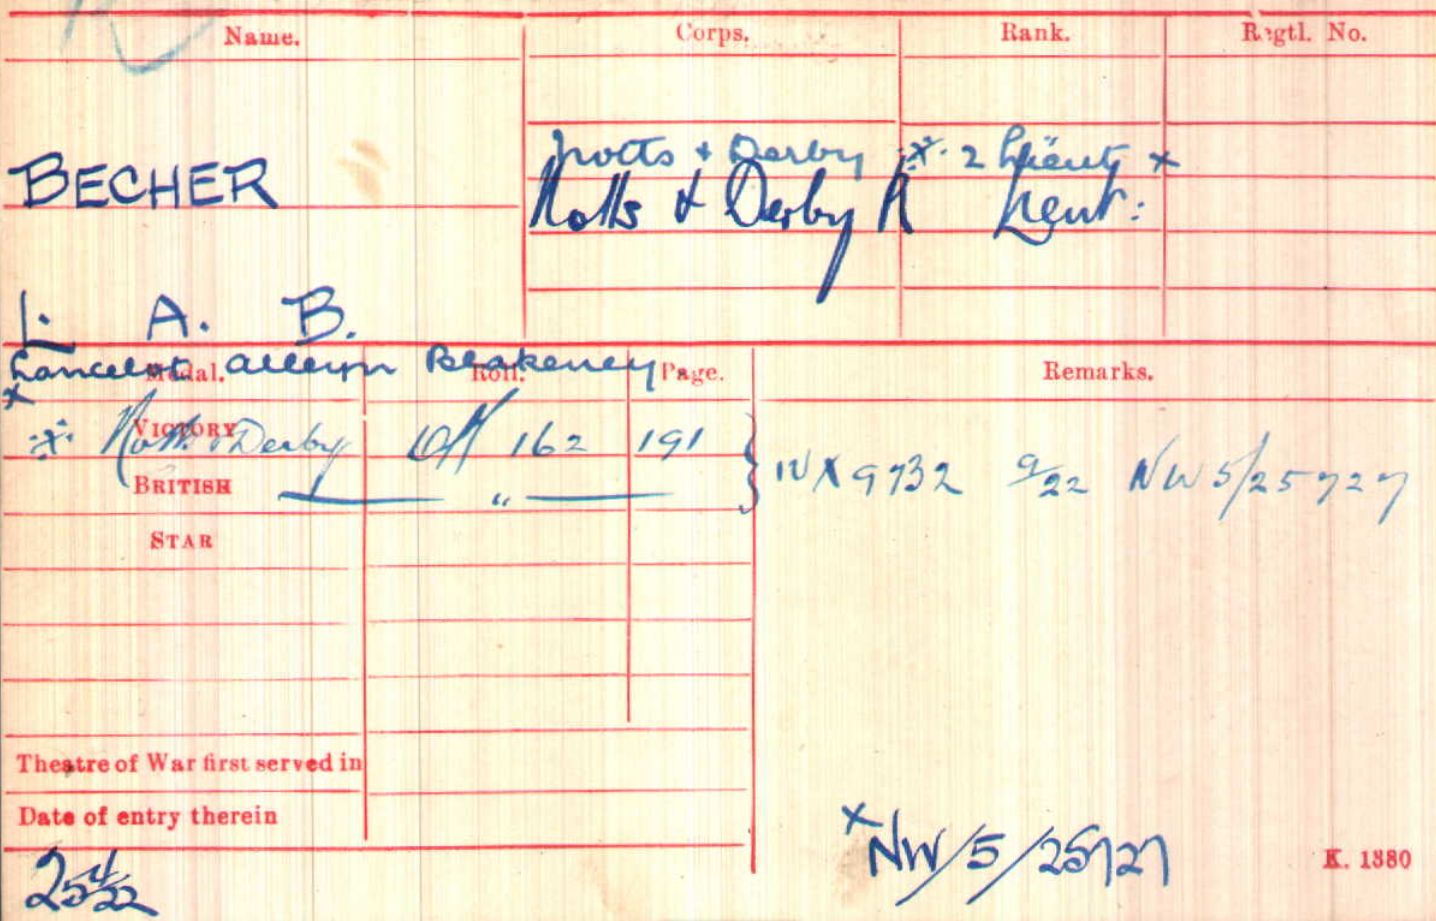 Name. Corps. Rank. Regtl. No.
Notts + Derby ·x· 2 Lieut x
BECHER Notts & Derby R Lieut:
L. A. B.
Lancelot Alleyn Blakeney
Medal. Roll. Page. Remarks.
x
·x· Notts & Derby VICTORY Off 162 191
BRITISH " } IV X 9732 9/22 NW5/25727
STAR
Theatre of War first served in
Date of entry therein
25/4/22
x NW/5/25727
K. 1380